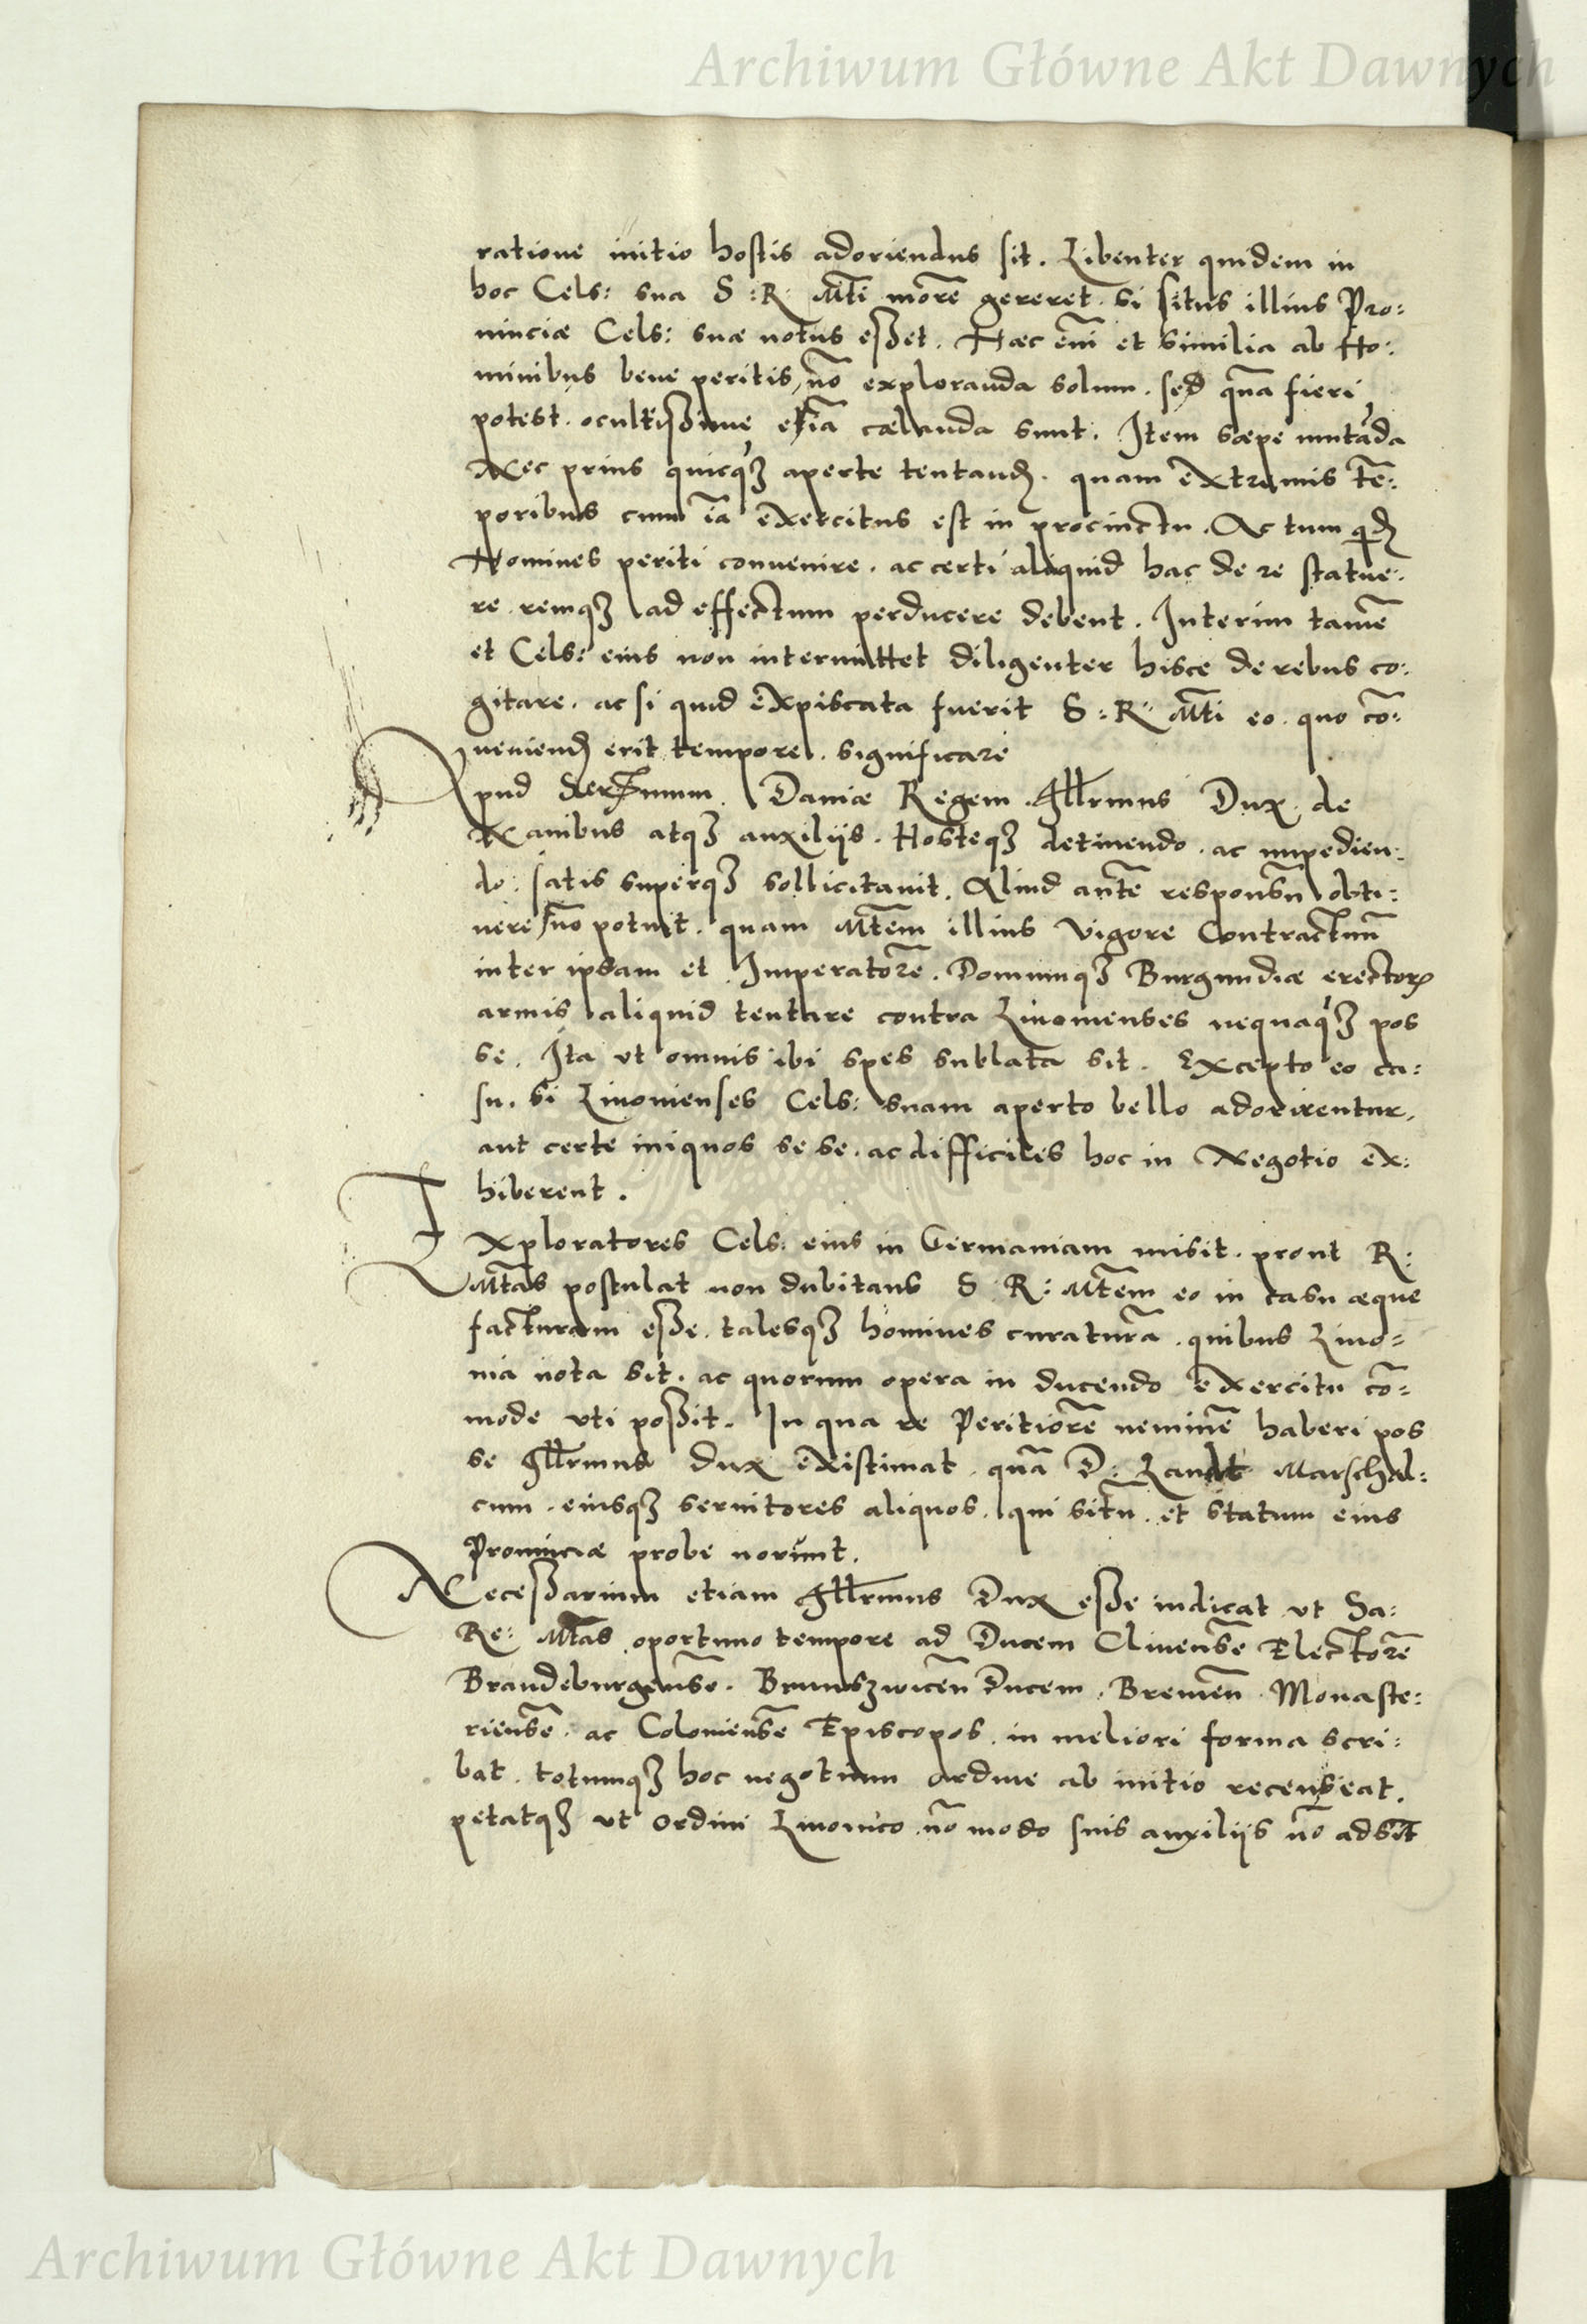 Archiwum Główne Akt Dawnych
ratione initio hostis adoriendus sit. Libenter quidem in
hoc Cels: sua S: R: Mti morē gereret. si situs illius Pro:
uinciæ Cels: suæ notus eßet. Hæc em̄ et similia ab Ho:
minibus bene peritis, nō exploranda solum. sed quā fieri
potest. ocultißime etiā cælanda sunt. Item sæpe mutāda
Nec prius quicq̃ʒ aperte tentand. quam extremis tē:
poribus cum iā exercitus est in procinctu. Ac tum qd
Homines periti conuenire. ac certi aliquid hac de re statue:
re remqʒ ad effectum perducere debent. Interim tamē
et Cels: eius non intermittet diligenter hisce de rebus co:
gitare. ac si quid expiscata fuerit S: R: Mti eo. quo cō:
ueniend erit tempore. significare
Apud Serenmum. Daniæ Regem. Illrmus Dux de
Nauibus atqʒ auxilijs. Hosteqʒ detinendo. ac impedien:
do: satis superqʒ sollicitauit. Aliud autē responsū obti:
nere nō potuit. quam Mtem illius Vigore Contractuū
inter ipsam et Imperatorē. Domumqʒ Burgundiæ erector
armis aliquid tentare contra Liuonienses nequaq̃ʒ pos
se. Ita vt omnis ibi spes sublata sit. Excepto eo ca:
su. si Liuonienses Cels: suam aperto bello adorirentur,
aut certe iniquos se se. ac difficiles hoc in Negotio ex:
hiberent.
Exploratores Cels: eius in Germaniam misit. prout R:
Mtas postulat non dubitans S: R: Mtem eo in casu æque
facturam eße. talesqʒ homines curaturā. quibus Liuo=
nia nota sit. ac quorum opera in ducendo exercitu cō=
mode vti poßit. In qua re Peritiorē neminē haberi pos
se Illrmus Dux existimat. quā D: Landt Marschal:
cum. eiusqʒ seruitores aliquos. qui sitū. et statum eius
Prouinciæ probe norunt.
Neceßarium etiam Illrmus Dux eße iudicat vt Sa:
Re: Mtas oportuno tempore ad Ducem Cliuensē Electorē
Brandeburgensē. Brunszwicen̄ Ducem. Bremen̄. Monaste:
riensē. ac Coloniensē Episcopos. in meliori forma scri:
bat. totumqʒ hoc negotium ordine ab initio recenseat.
petatqʒ vt Ordini Liuonico nō modo suis auxilijs nō adsīt
Archiwum Główne Akt Dawnych